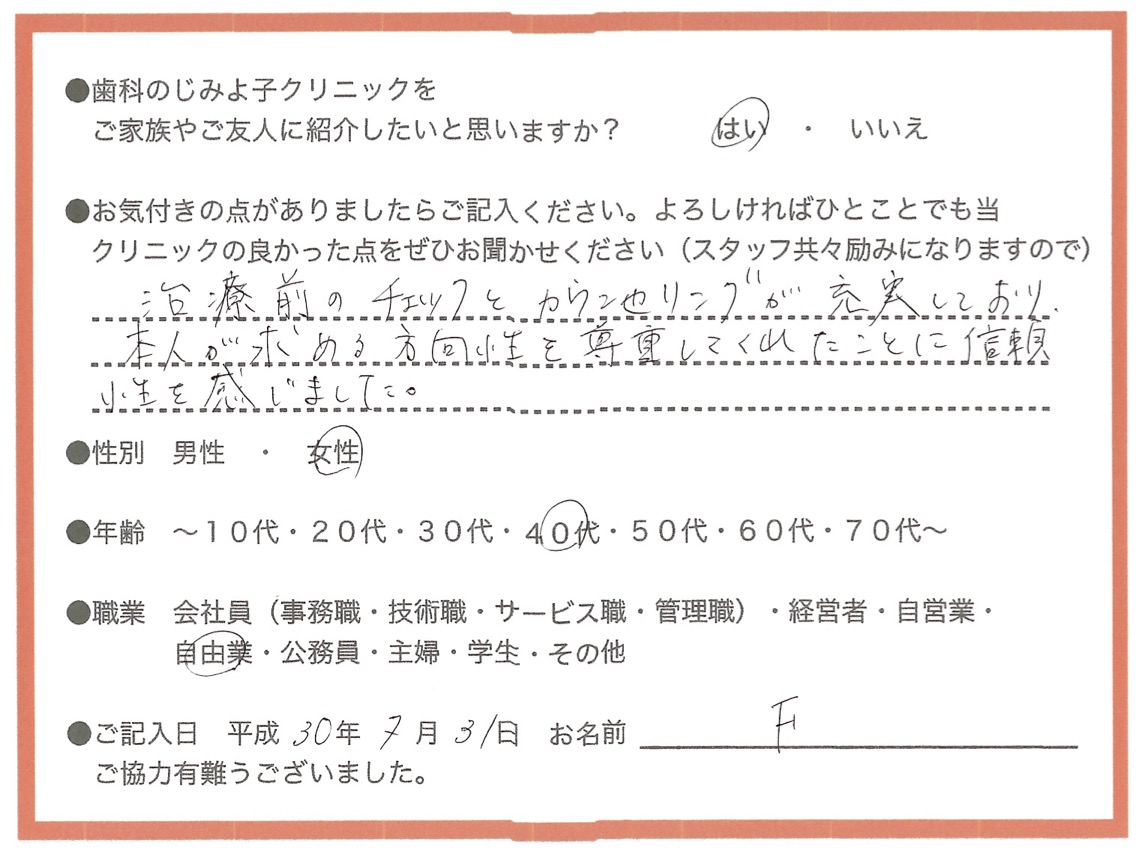 ●歯科のじみよ子クリニックを
ご家族やご友人に紹介したいと思いますか？ はい ・ いいえ
●お気付きの点がありましたらご記入ください。よろしければひとことでも当
クリニックの良かった点をぜひお聞かせください（スタッフ共々励みになりますので）
治療前のチェックとカウンセリングが充実しており、
本人が求める方向性を尊重してくれたことに信頼
性を感じました。
●性別 男性 ・ 女性
●年齢 〜１０代・２０代・３０代・４０代・５０代・６０代・７０代〜
●職業 会社員（事務職・技術職・サービス職・管理職）・経営者・自営業・
自由業・公務員・主婦・学生・その他
●ご記入日 平成 30年 7月 31日 お名前 F
ご協力有難うございました。